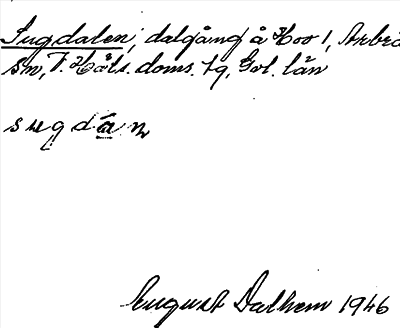 Sugdalen, dalgång å Hoo 1, Arbrå
sn, V. Häls. doms. tg, Gvl. län
sugdàn
August Dalhem 1946